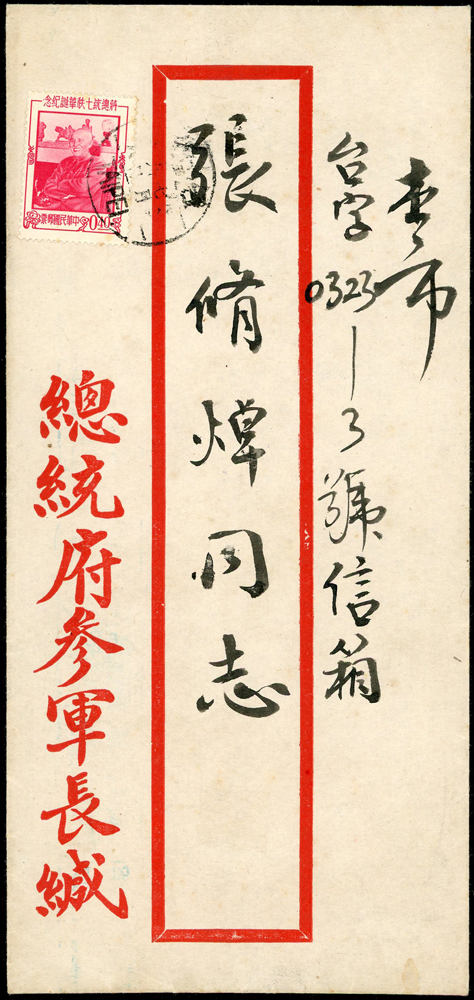 本市
台字0323-3號信箱
張脩焯同志
總統府參軍長緘
蔣總統七秩華誕紀念
中華民國郵票
0.40